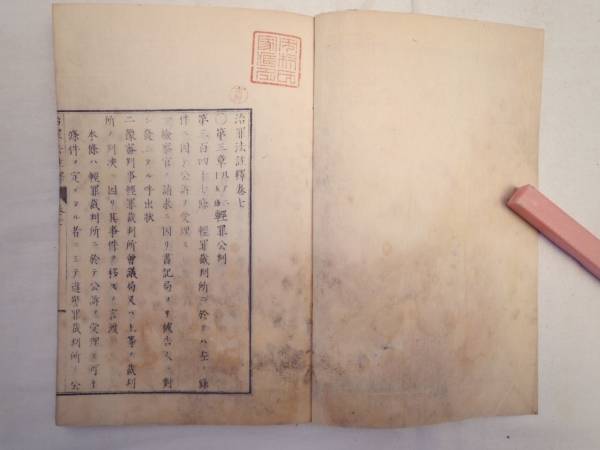 治罪法註釋卷七
第三章 輕罪公判
第三百四十七條 輕罪裁判所ニ於テハ左ノ條
件ニ因リ公訴ヲ受理ス
一檢察官ノ請求ニ因リ書記局ヨリ被告人ニ對
シ發シタル呼出狀
二豫審判事輕罪裁判所會議局又ハ上等ノ裁判
所ノ判決ニ因リ其事件ヲ移スノ言渡
本條ハ輕罪裁判所ニ於テ公訴ヲ受理ス可キ
條件ヲ定メタル者ニシテ違警罪裁判所ニ公